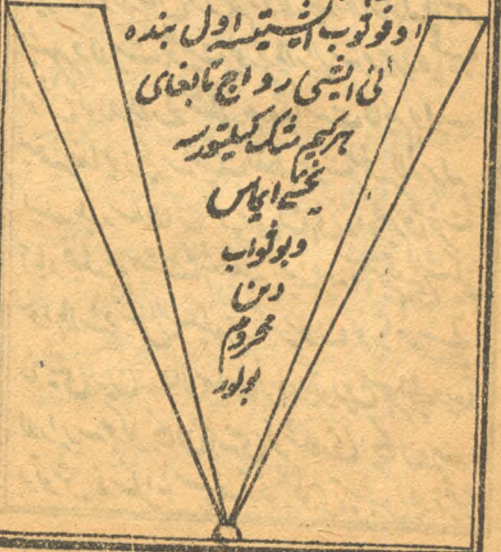 اوقوتوب ایشیتسه اول بنده
نی ایشی رواج تابغای
هرکیم شک کیلتورسه
یخشی ایماس
و بو ثواب
دین
محروم
بولور